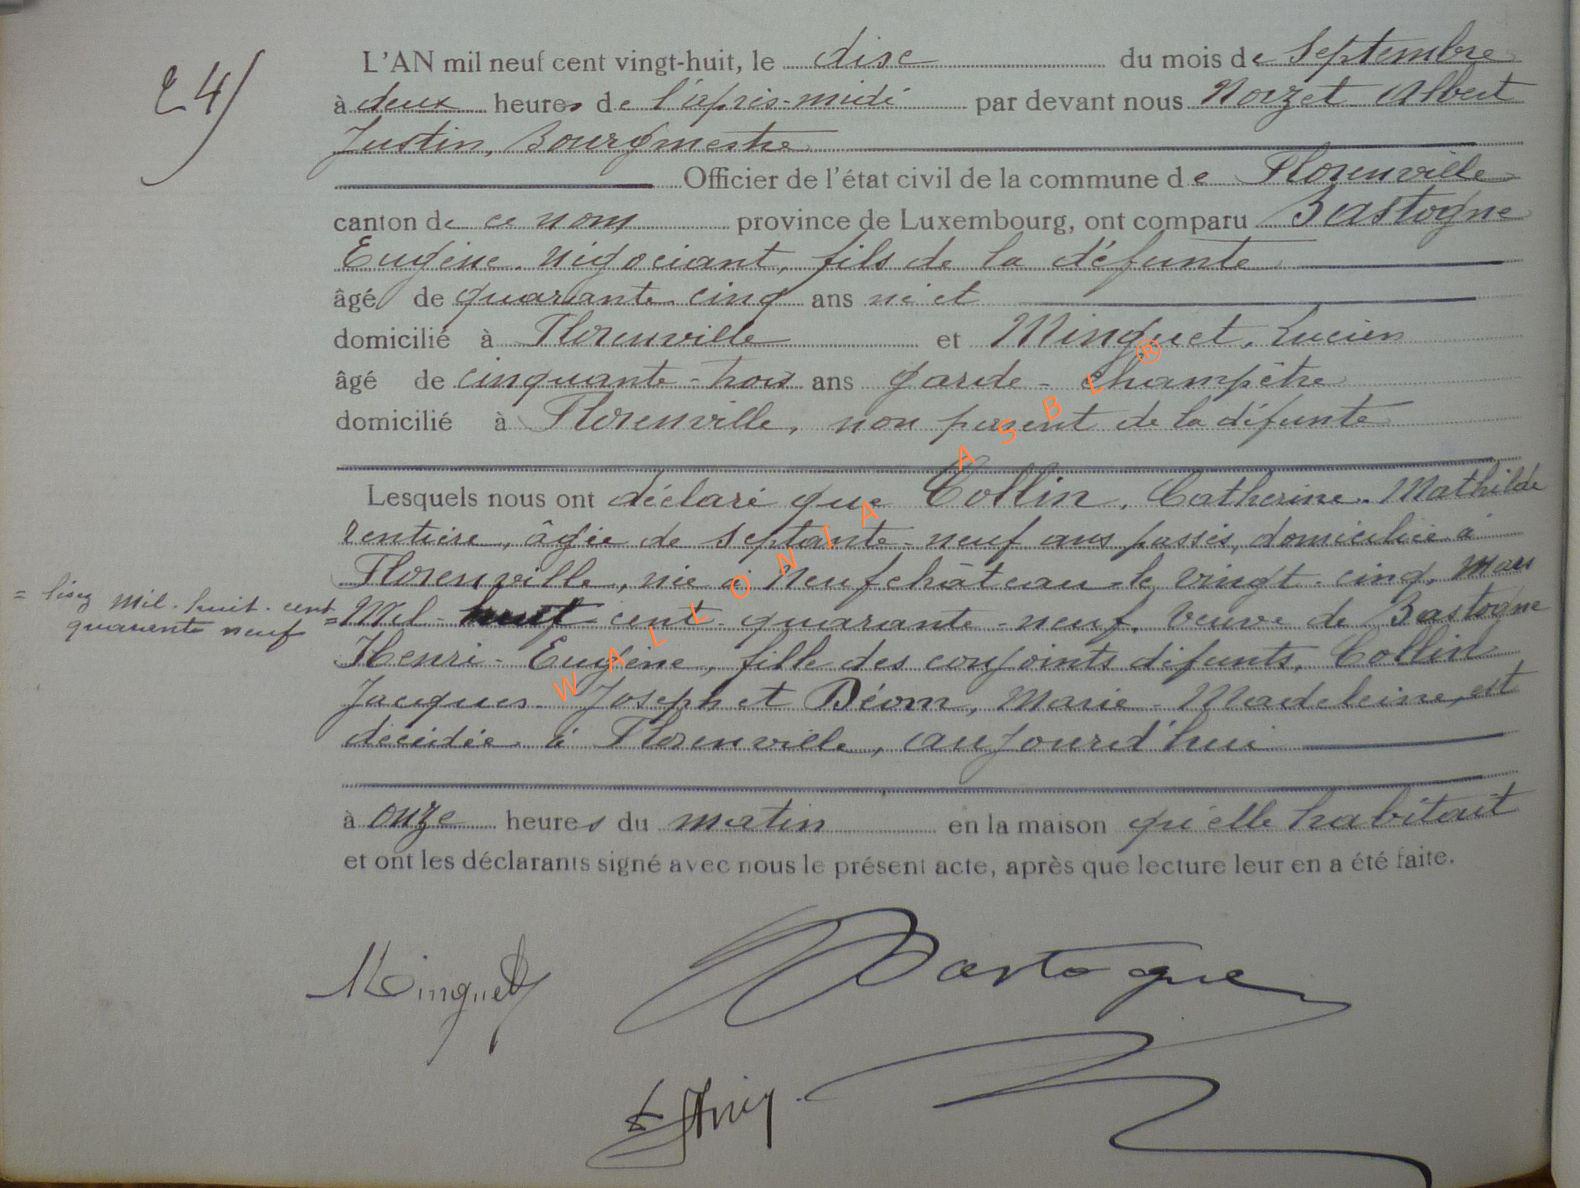 24)
L'AN mil neuf cent vingt-huit, le disc du mois de Septembre
à deux heures de l'après-midi par devant nous Noizet Albert
Justin, Bourgmestre
Officier de l'état civil de la commune de Florenville
canton de ce nom province de Luxembourg, ont comparu Bastogne
Eugène, négociant, fils de la défunte
âgé de quarante cinq ans né et
domicilié à Florenville et Minguet, Lucien
âgé de cinquante-trois ans garde-champêtre
domicilié à Florenville, non parent de la défunte
Lesquels nous ont déclaré que Collin, Catherine-Mathilde
rentière, âgée de septante-neuf ans passés, domiciliée à
Florenville, née à Neufchâteau le vingt-cinq Mars
= lisez mil-huit-cent
quarente neuf
= Mil-huit cent-quarante-neuf, veuve de Bastogne
Henri-Eugène, fille des conjoints défunts, Collin
Jacques-Joseph et Déom, Marie-Madeleine, est
décédée à Florenville, aujourd'hui
à onze heures du matin en la maison qu'elle habitait
et ont les déclarants signé avec nous le présent acte, après que lecture leur en a été faite.
Minguet
Bastogne
WALLONIA ASBL ®